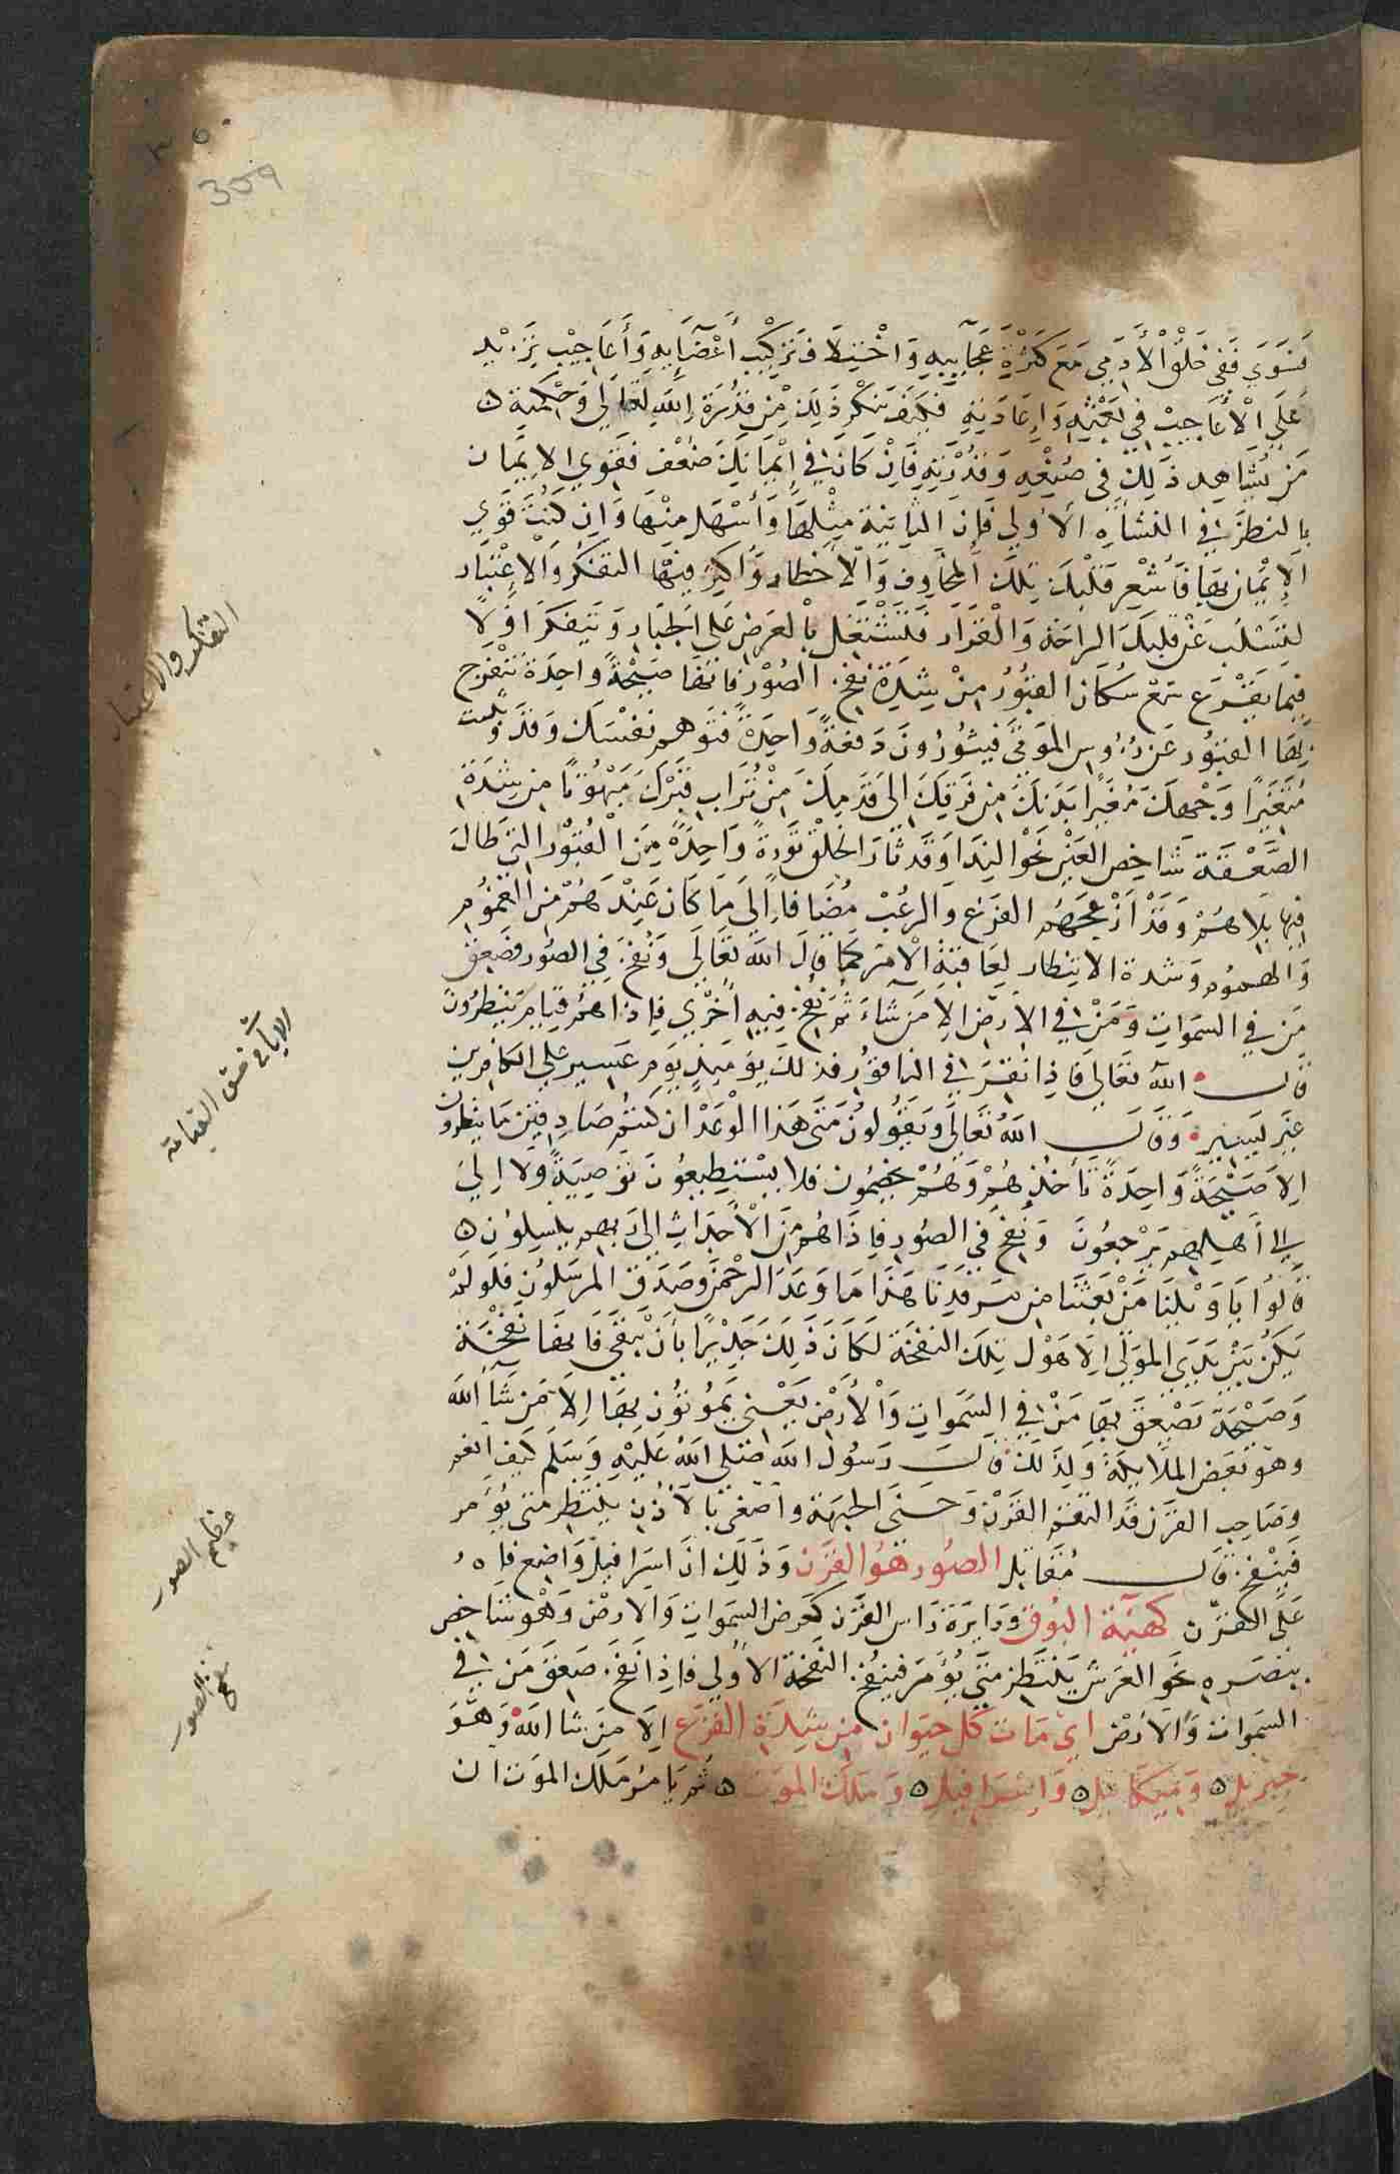 ٣٥٠
359
فسوي ففي خلق الأدمي مع كثرة عجايبه واختلاف تركيب أعضايه وأعاجيب تزيد
على الأعاجيب في بعثه وإعادته فكيف ينكر ذلك من قدرة الله تعالى وحكمته
من يشاهد ذلك في صنعه وقدرته فان كان في إيمانك ضعف فقوي الايمان
بالنظر في النشاة الأولي فان الثانية مثلها وأسهل منها وان كنت قوي
الإيمان بها فأشعر قلبك تلك المخاوف والأخطار واكثر فيها التفكر والاعتبار
لتسلب عن قلبك الراحة والقرار فتشتغل بالعرض على الجبار وتتفكر اولا
فيما يقرع سمع سكان القبور من شدة نفخ الصور فانها صيحة واحدة تنفرج
بها القبور عن رؤوس الموتى فيثورون دفعة واحدة فتوهم نفسك وقد وثبت
متغيرا وجهك مغبرا بدنك من فرقك الى قدميك من تراب قبرك مبهوتا من شدة
الصعقة شاخص العين نحو الندا وقد ثار الخلق ثورة واحدة من القبور التي طال
فيها بلاهم وقد ازعجهم الفزع والرعب مضافا إلى ما كان عندهم من الغموم
والهموم وشدة الانتظار لعاقبة الامر كما قال الله تعالى ونفخ في الصور فصعق
من في السموات ومن في الارض الا من شاء ثم نفخ فيه اخري فاذا هم قيام ينظرون
قال الله تعالى فاذا نقر في الناقور فذلك يوميذ يوم عسير على الكافرين
غير يسير وقال الله تعالى ويقولون متى هذا الوعد ان كنتم صادقين ما ينظرون
الا صيحة واحدة تأخذهم وهم يخصمون فلا يستطيعون توصية ولا الي
الى أهلهم يرجعون ونفخ في الصور فاذا هم من الأجداث الى ربهم ينسلون
قالوا يا ويلنا من بعثنا من مرقدنا هذا ما وعد الرحمن وصدق المرسلون فلو لم
يكن بين يدي الموتى الا هول تلك النفخة لكان ذلك جديرا بأن يتقي فانها نفخة
وصيحة يصعق بها من في السموات والأرض يعني يموتون بها إلا من شا الله
وهو بعض الملايكة ولذلك قال رسول الله صلى الله عليه وسلم كيف انعم
وصاحب القرن قد التقم القرن وحنى الجبهة واصغى بالأذن ينتظر متى يؤمر
فينفخ قال مقاتل الصور هو القرن وذلك ان اسرافيل واضع فاه
على القرن كهيئة البوق ودايرة راس القرن كعرض السموات والارض وهو شاخص
بصره نحو العرش ينتظر متى يؤمر فينفخ النفخة الأولي فاذا نفخ صعق من في
السموات والأرض اي مات كل حيوان من شدة الفزع الا من شا الله وهو
جبريل وميكاييل واسرافيل وملك الموت ثم يامر ملك الموت ان
التفكر والاعتبار
الايات في حق القيامة
عظيم الصور
نفخ الصور